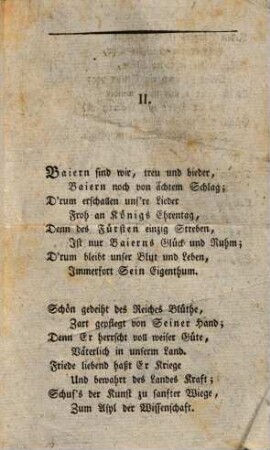 II.
Baiern sind wir, treu und bieder,
Baiern noch von ächtem Schlag;
D'rum erschallen uns're Lieder
Froh an Königs Ehrentag,
Denn des Fürsten einzig Streben,
Ist nur Baierns Glück und Ruhm;
D'rum bleibt unser Blut und Leben,
Immerfort Sein Eigenthum.
Schön gedeiht des Reiches Blüthe,
Zart gepflegt von Seiner Hand;
Denn Er herrscht voll weiser Güte,
Väterlich in unserm Land.
Friede liebend haßt Er Kriege
Und bewahrt des Landes Kraft;
Schuf's der Kunst zu sanfter Wiege,
Zum Asyl der Wissenschaft.